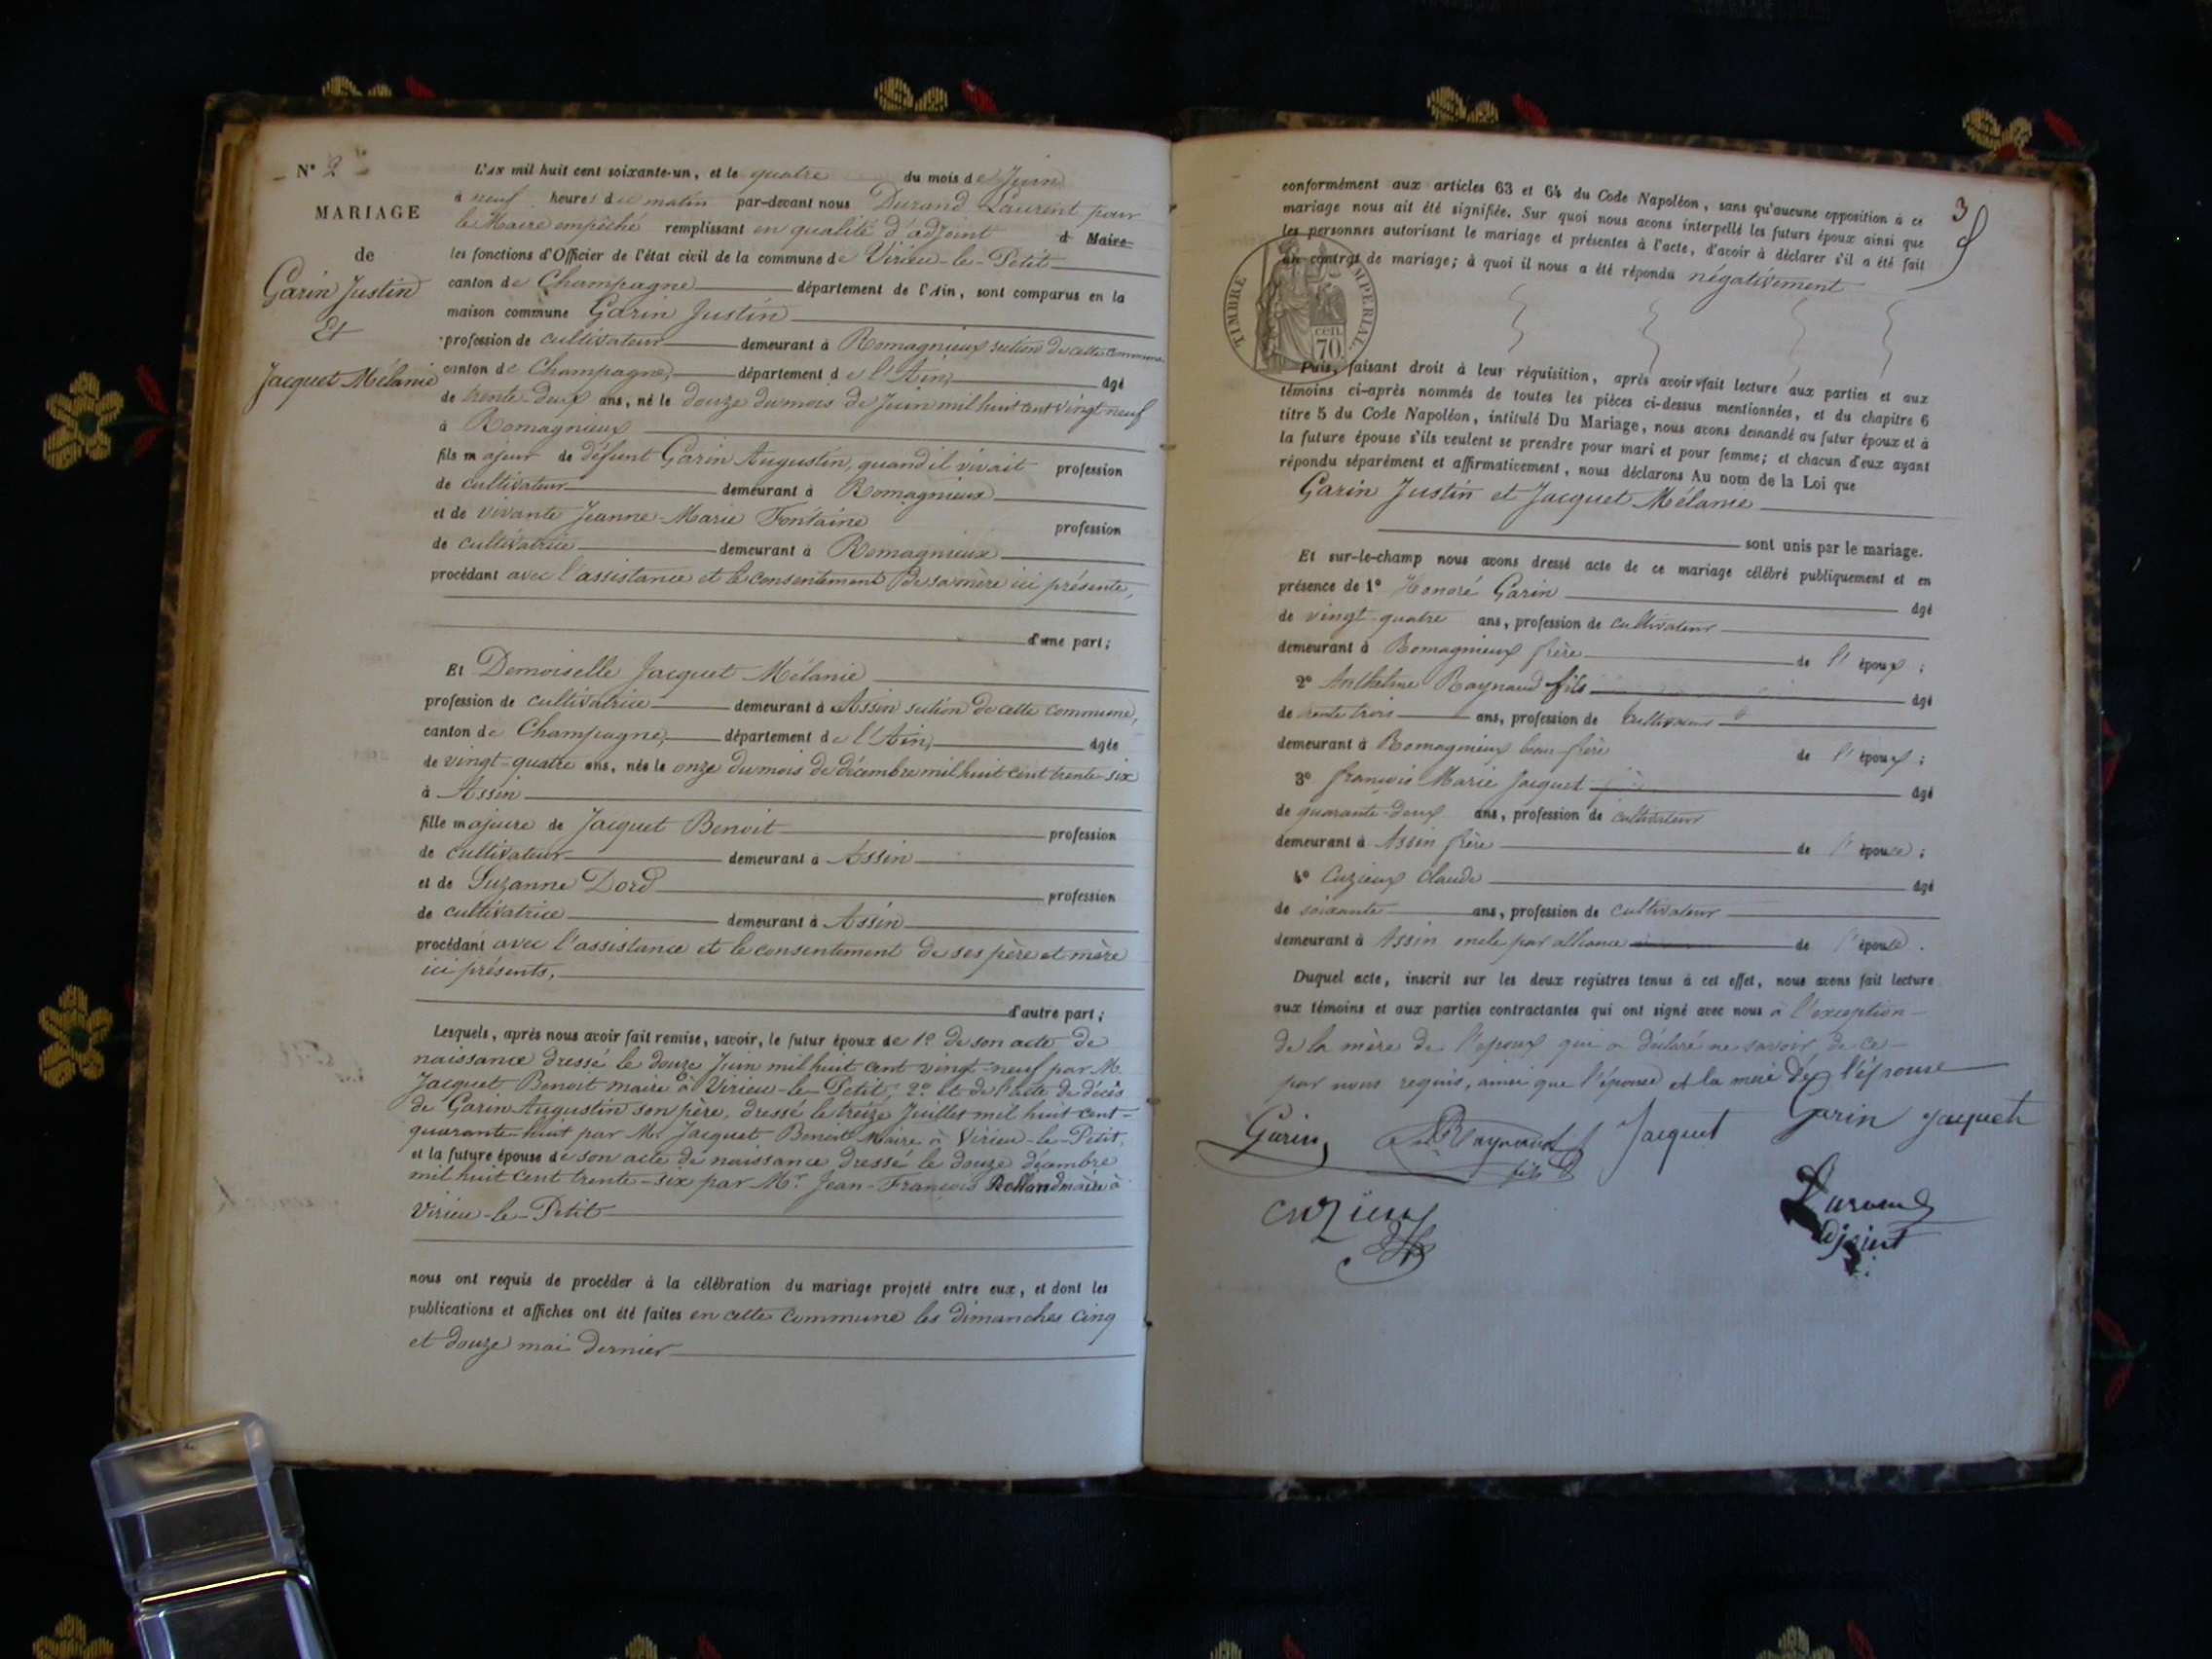 N° 2
MARIAGE
de
Garin Justin
Et
Jacquet Mélanie
L'an mil huit cent soixante-un, et le quatre du mois de Juin
à neuf heures du matin par-devant nous Durand Laurent pour
le Maire empêché remplissant en qualité d'adjoint d Maire
les fonctions d'Officier de l'état civil de la commune de Virieu-le-Petit
canton de Champagne département de l'Ain, sont comparus en la
maison commune Garin Justin
profession de cultivateur demeurant à Romagnieux section de cette commune
canton de Champagne, département de l'Ain, âgé
de trente-deux ans, né le douze du mois de Juin mil huit cent vingt neuf
à Romagnieux
fils majeur de défunt Garin Augustin, quand il vivait profession
de cultivateur demeurant à Romagnieux
et de vivante Jeanne-Marie Fontaine profession
de cultivatrice demeurant à Romagnieux
procédant avec l'assistance et le consentement de sa mère ici présente,
d'une part;
Et Demoiselle Jacquet Mélanie
profession de cultivatrice demeurant à Assin section de cette commune,
canton de Champagne, département de l'Ain, âgée
de vingt-quatre ans, née le onze du mois de décembre mil huit cent trente-six
à Assin
fille majeure de Jacquet Benoit profession
de cultivateur demeurant à Assin
et de Suzanne Dord profession
de cultivatrice demeurant à Assin
procédant avec l'assistance et le consentement de ses père et mère
ici présents,
d'autre part;
Lesquels, après nous avoir fait remise, savoir, le futur époux de 1° de son acte de
naissance dressé le douze Juin mil huit cent vingt-neuf par M.
Jacquet Benoit maire à Virieu-le-Petit, 2° et de l'acte de décès
de Garin Augustin son père, dressé le treize Juillet mil huit cent-
quarante-huit par M. Jacquet Benoit Maire à Virieu-le-Petit,
et la future épouse de son acte de naissance dressé le douze décembre
mil huit cent trente-six par Mr. Jean-François Rolland maire à
Virieu-le-Petit
nous ont requis de procéder à la célébration du mariage projeté entre eux, et dont les
publications et affiches ont été faites en cette commune les dimanches cinq
et douze mai dernier
3
conformément aux articles 63 et 64 du Code Napoléon, sans qu'aucune opposition à ce
mariage nous ait été signifiée. Sur quoi nous avons interpellé les futurs époux ainsi que
les personnes autorisant le mariage et présentes à l'acte, d'avoir à déclarer s'il a été fait
un contrat de mariage; à quoi il nous a été répondu négativement
TIMBRE IMPERIAL.
cen.
70
Puis, faisant droit à leur réquisition, après avoir fait lecture aux parties et aux
témoins ci-après nommés de toutes les pièces ci-dessus mentionnées, et du chapitre 6
titre 5 du Code Napoléon, intitulé Du Mariage, nous avons demandé au futur époux et à
la future épouse s'ils veulent se prendre pour mari et pour femme; et chacun d'eux ayant
répondu séparément et affirmativement, nous déclarons Au nom de la Loi que
Garin Justin et Jacquet Mélanie
sont unis par le mariage.
Et sur-le-champ nous avons dressé acte de ce mariage célébré publiquement et en
présence de 1° Honoré Garin âgé
de vingt-quatre ans, profession de cultivateur
demeurant à Romagnieux frère de l'époux;
2° Anthelme Raynaud fils âgé
de trente trois ans, profession de cultivateur
demeurant à Romagnieux beau-frère de l'époux;
3° François Marie Jacquet âgé
de quarante-deux ans, profession de cultivateur
demeurant à Assin frère de l'épouse;
4° Cuzieux Claude âgé
de soixante ans, profession de cultivateur
demeurant à Assin oncle par alliance de l'épouse.
Duquel acte, inscrit sur les deux registres tenus à cet effet, nous avons fait lecture
aux témoins et aux parties contractantes qui ont signé avec nous à l'exception
de la mère de l'époux qui a déclaré ne savoir, de ce
par nous requis, ainsi que l'épouse et la mère de l'épouse
Garin Raynaud fils Jacquet Garin Jaquet
Cuzieux
Durand
adjoint